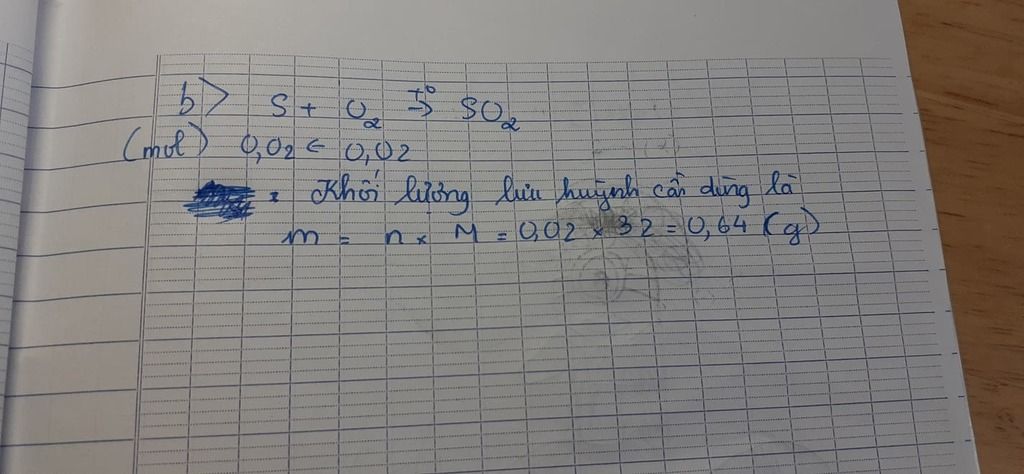 b> S + O₂ →t° SO₂
(mol) 0,02 ← 0,02
* Khối lượng lưu huỳnh cần dùng là
m = n × M = 0,02 × 32 = 0,64 (g)